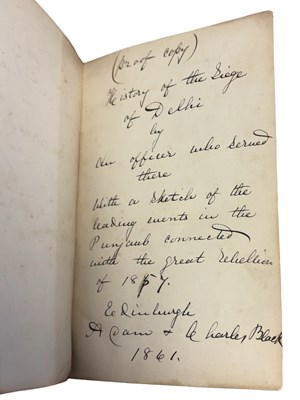 (Proof copy)
History of the Siege
of Delhi
by
An officer who served
there
With a sketch of the
leading events in the
Punjaub connected
with the great rebellion
of 1857.
Edinburgh
Adam & Charles Black
1861.